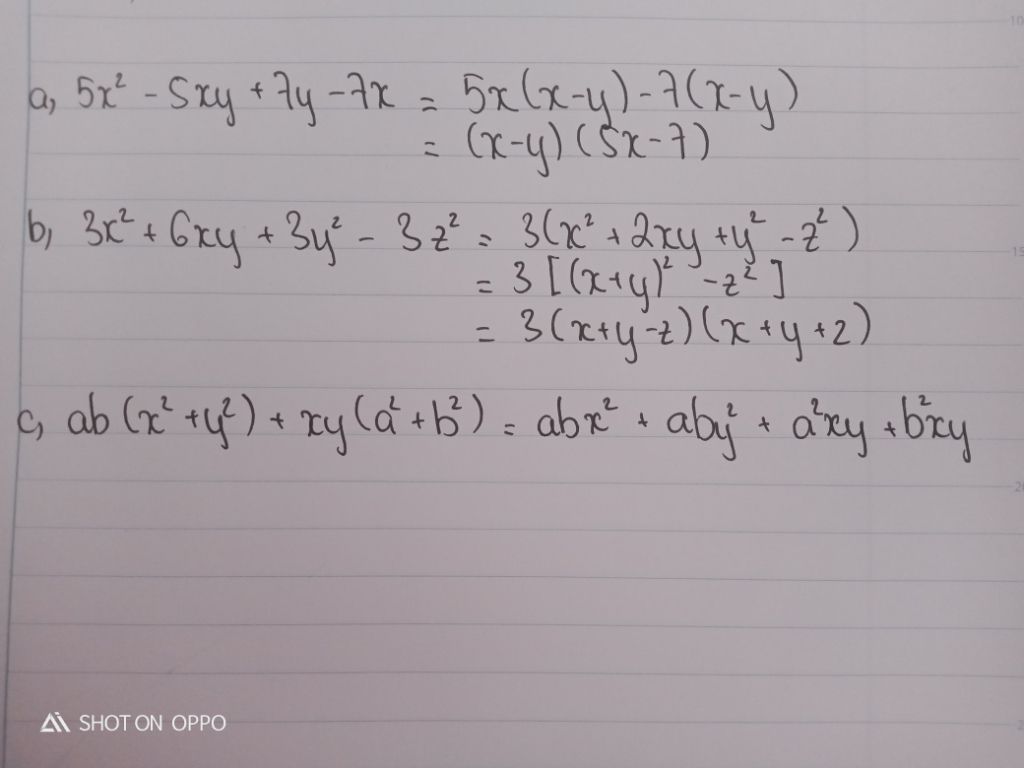 a, 5x² - 5xy + 7y - 7x = 5x(x-y) - 7(x-y)
= (x-y)(5x-7)
b, 3x² + 6xy + 3y² - 3z² = 3(x² + 2xy + y² - z²)
= 3[(x+y)² - z²]
= 3(x+y-z)(x+y+2)
c, ab(x² + y²) + xy(a² + b²) = abx² + aby² + a²xy + b²xy
SHOT ON OPPO